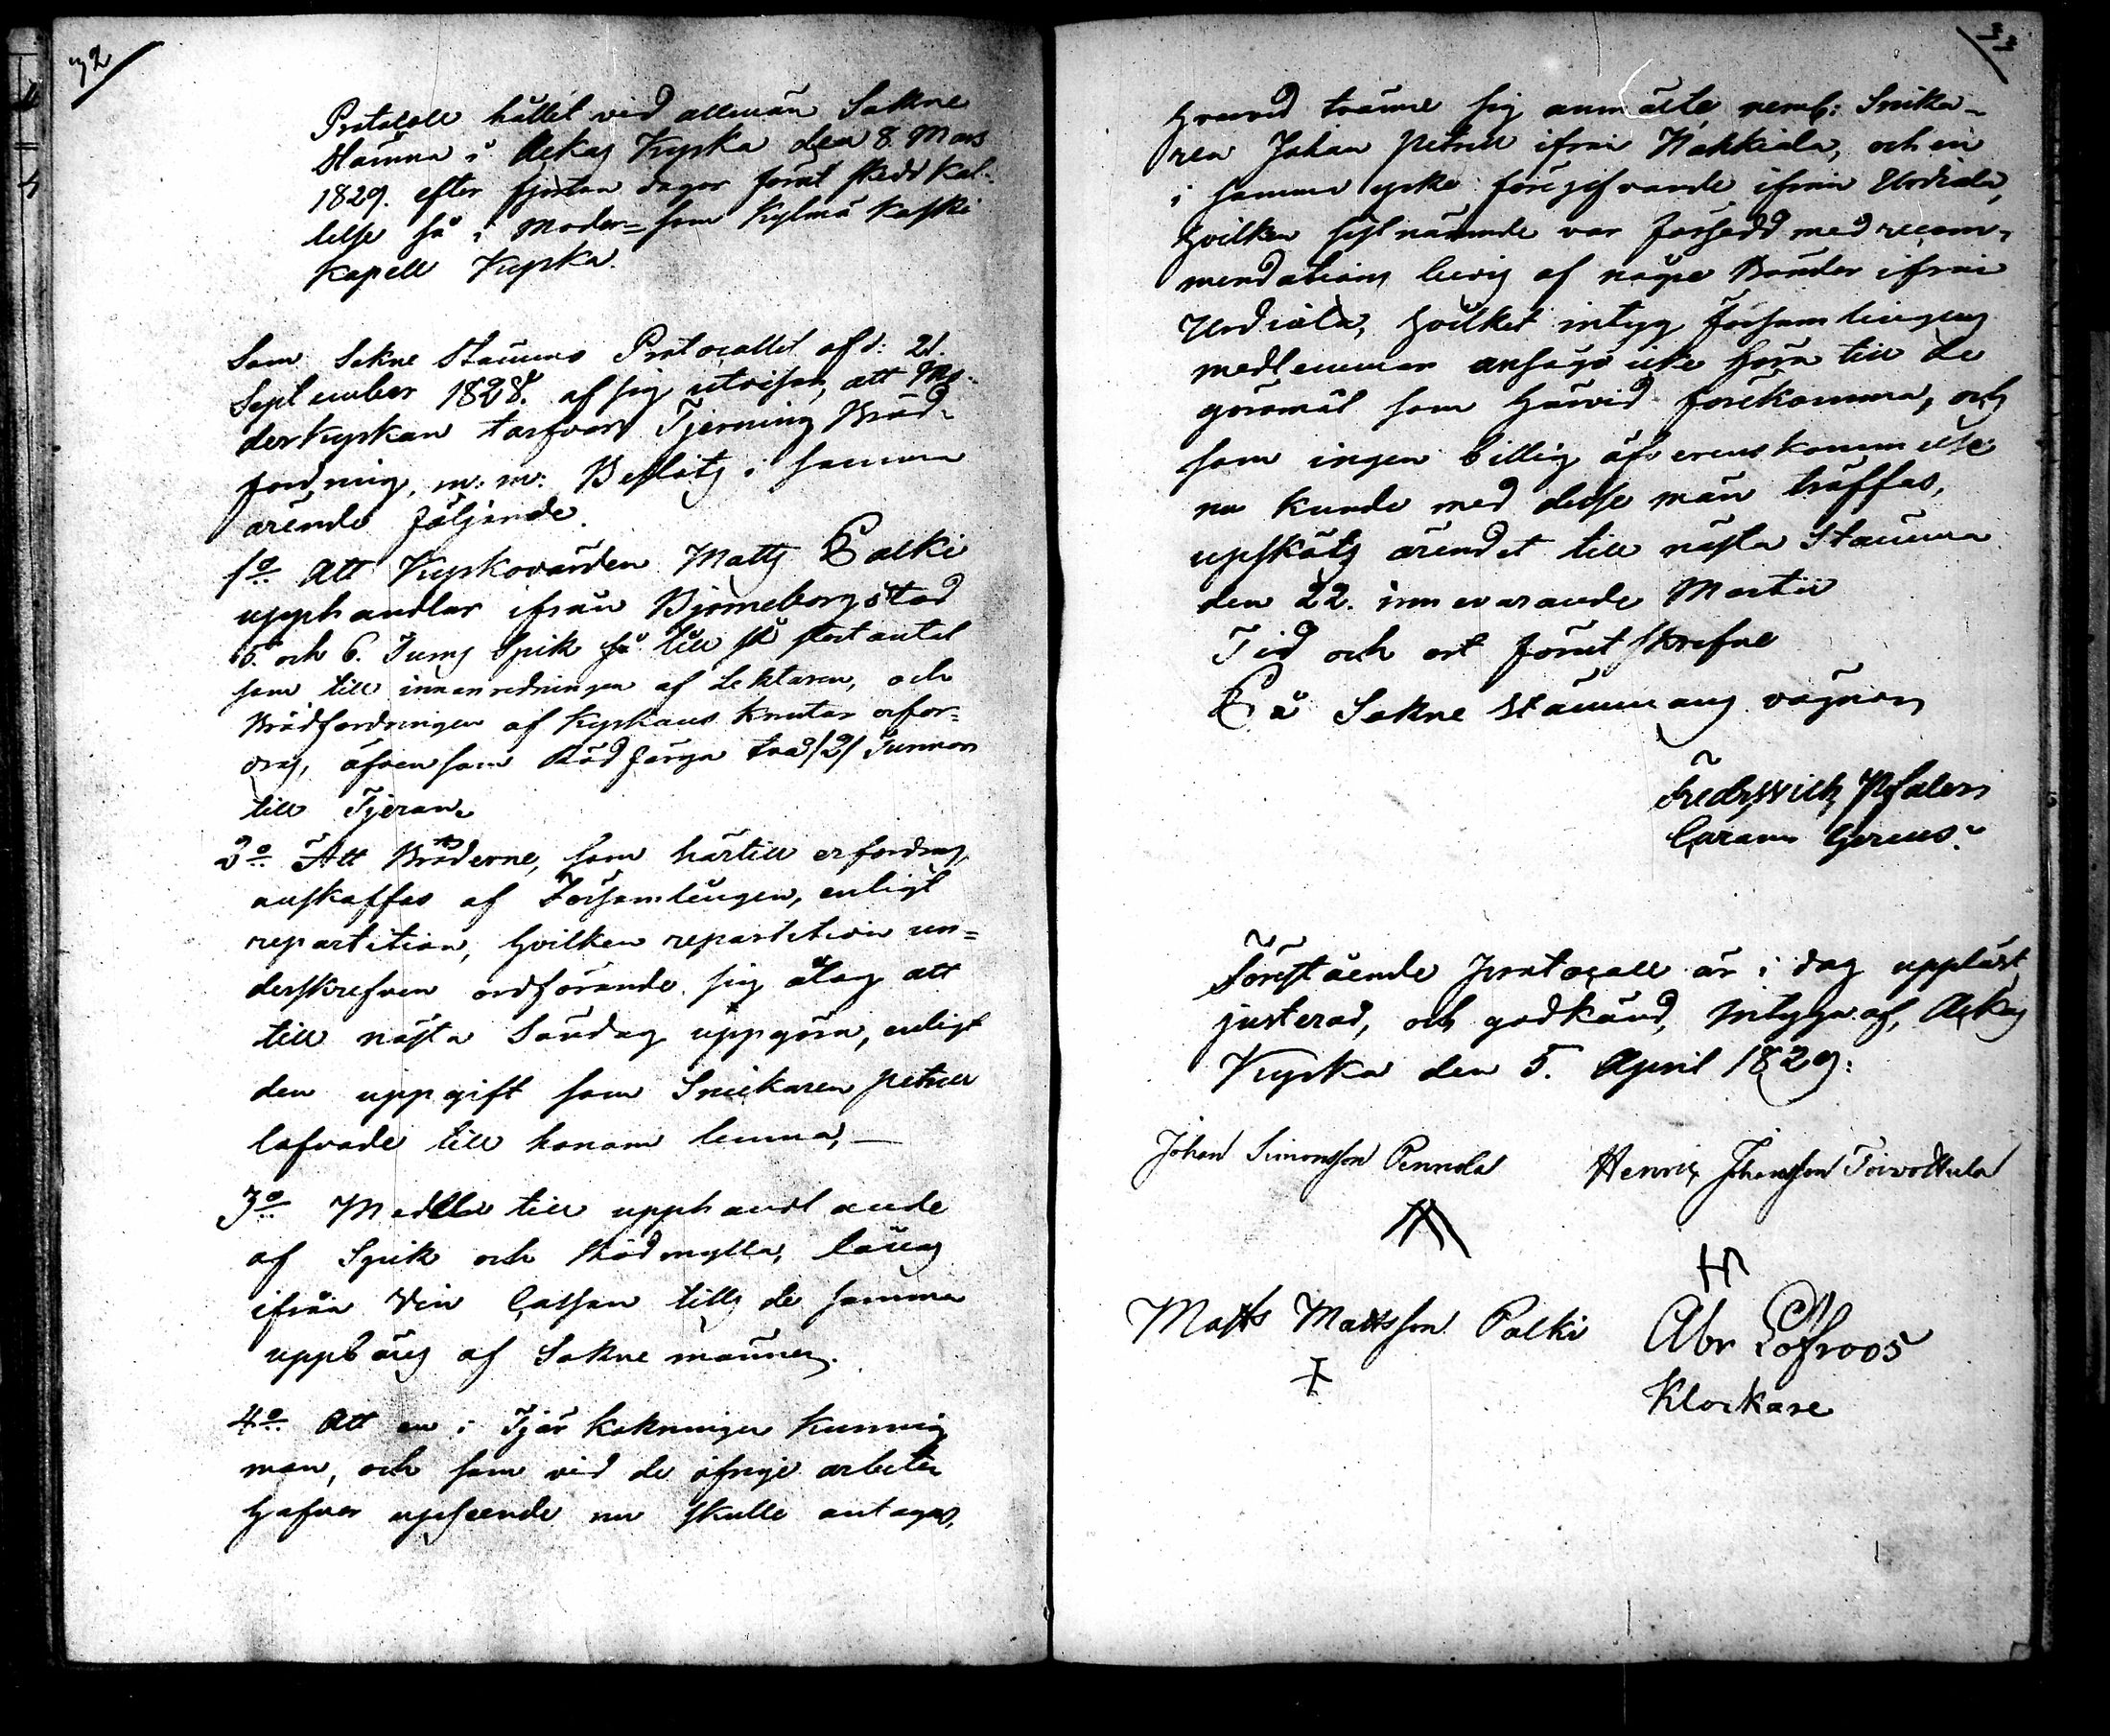 32
Protocoll hållet vid allmän Sokne
Stämma i Ackas Kyrka den 8. Mars
1829. efter fjorton dagar förut skedd kal-
lelse så i Moder- som Kylmä Koski
Kapell Kyrka.
Som Sokne Stämmo Protocollet af d: 21.
September 1828. af sig utvisar, att Mo-
derkyrkan tarfvar Tjerning Bräd-
fordring, m: m: Beslöts i samma
ärende följande.
1o Att Kyrkovärden Matts Palki
upphandlar ifrån Björneborgs Stad
5. och 6. Tums Spik så till stort antal
som till innanredningen af Lektaren, och
Brädfordringen af Kyrkans Knutar erfor-
dras, äfvensom Rödfärga två /2/ Tunnor
till Tjeran.
2o Att Bräderne, som härtill erfordras,
anskaffas af Församlingen, enligt
repartition, hvilken repartition un-
derskrefven ordförande sig åtog att
till nästa Söndag uppgöra, enligt
den uppgift som Snickaren Petrell
lofvade till honom lemna, —
3o Medlen till upphandlande
af Spik och Rödmylla, lånas
ifrån Vin Cassan tills de samma
uppbäres af Sokne männen.
4o Att en i Tjär kokningen kunnig
man, och som vid de öfrige arbeten
hafver upseende nu skulle antagas,
33
hvarvid tvänne sig anmälte neml: Snika-
ren Johan Petrell ifrån Hakkiala, och en
i samma yrke föregifvande ifrån Urdiala,
hvilken sistnämnde var försedd med recom-
mendations bevis af någre Bönder ifrån
Urdiala, hvilket intyg Församlingens
medlemmar ansågo icke höra till de
göromål som härvid förekomma, och
som ingen billig öfverenskommelse
nu kunde med desse män träffas,
upskots ärendet till nästa Stämma
den 22. innevarande Martii
Tid och ort förut skrefne
På Sokne Stämmans vägnar
Fredr Wilh Pfaler
Coram Gerens.
Förestående Protocoll är i dag uppläst
justerad, och godkänd, intygar af, Ackas
Kyrka den 5. April 1829:
Johan Simonsson Pennola Henric Johansson
Matts Mattsson Palki Abr Löfroos
Klockare